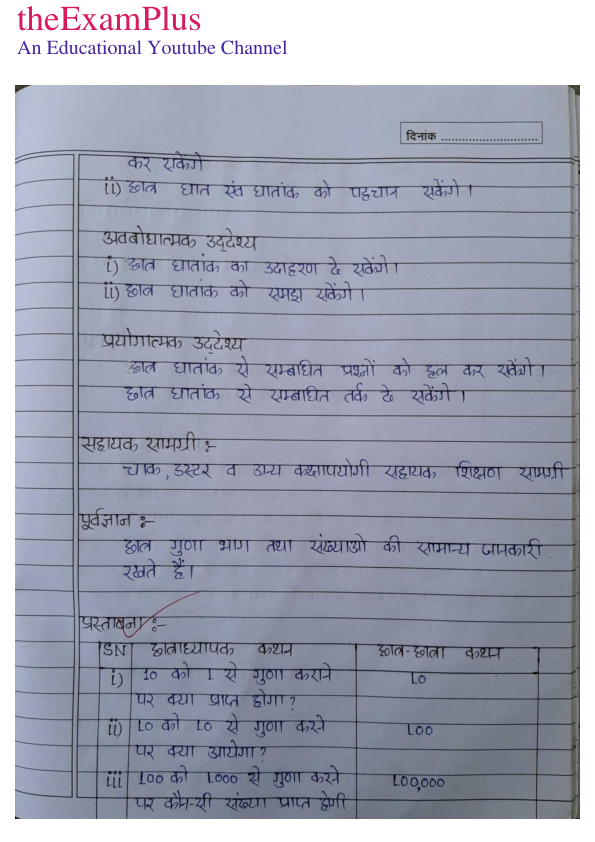 theExamPlus
An Educational Youtube Channel
दिनांक ..............................
कर सकेंगे
ii) छात्र घात एंव घातांक को पहचान सकेंगे।
अवबोधात्मक उद्देश्य
i) छात्र घातांक का उदाहरण दे सकेंगे।
ii) छात्र घातांक को समझ सकेंगे।
प्रयोगात्मक उद्देश्य
छात्र घातांक से सम्बाधित प्रश्नों को हल कर सकेंगे।
छात्र घातांक से सम्बाधित तर्क दे सकेंगे।
सहायक सामग्री :-
चाक, डस्टर व अन्य कक्षापयोगी सहायक शिक्षण सामग्री
पूर्वज्ञान :-
छात्र गुणा भाग तथा संख्याओ की सामान्य जानकारी
रखते हैं।
प्रस्तावना :-
SN छात्राध्यापक कथन छात्र-छात्रा कथन
i) 10 को 1 से गुणा कराने 10
पर क्या प्राप्त होगा?
ii) 10 को 10 से गुणा करने 100
पर क्या आयेगा?
iii 100 को 1000 से गुणा करने 100,000
पर कौन-सी संख्या प्राप्त होगी